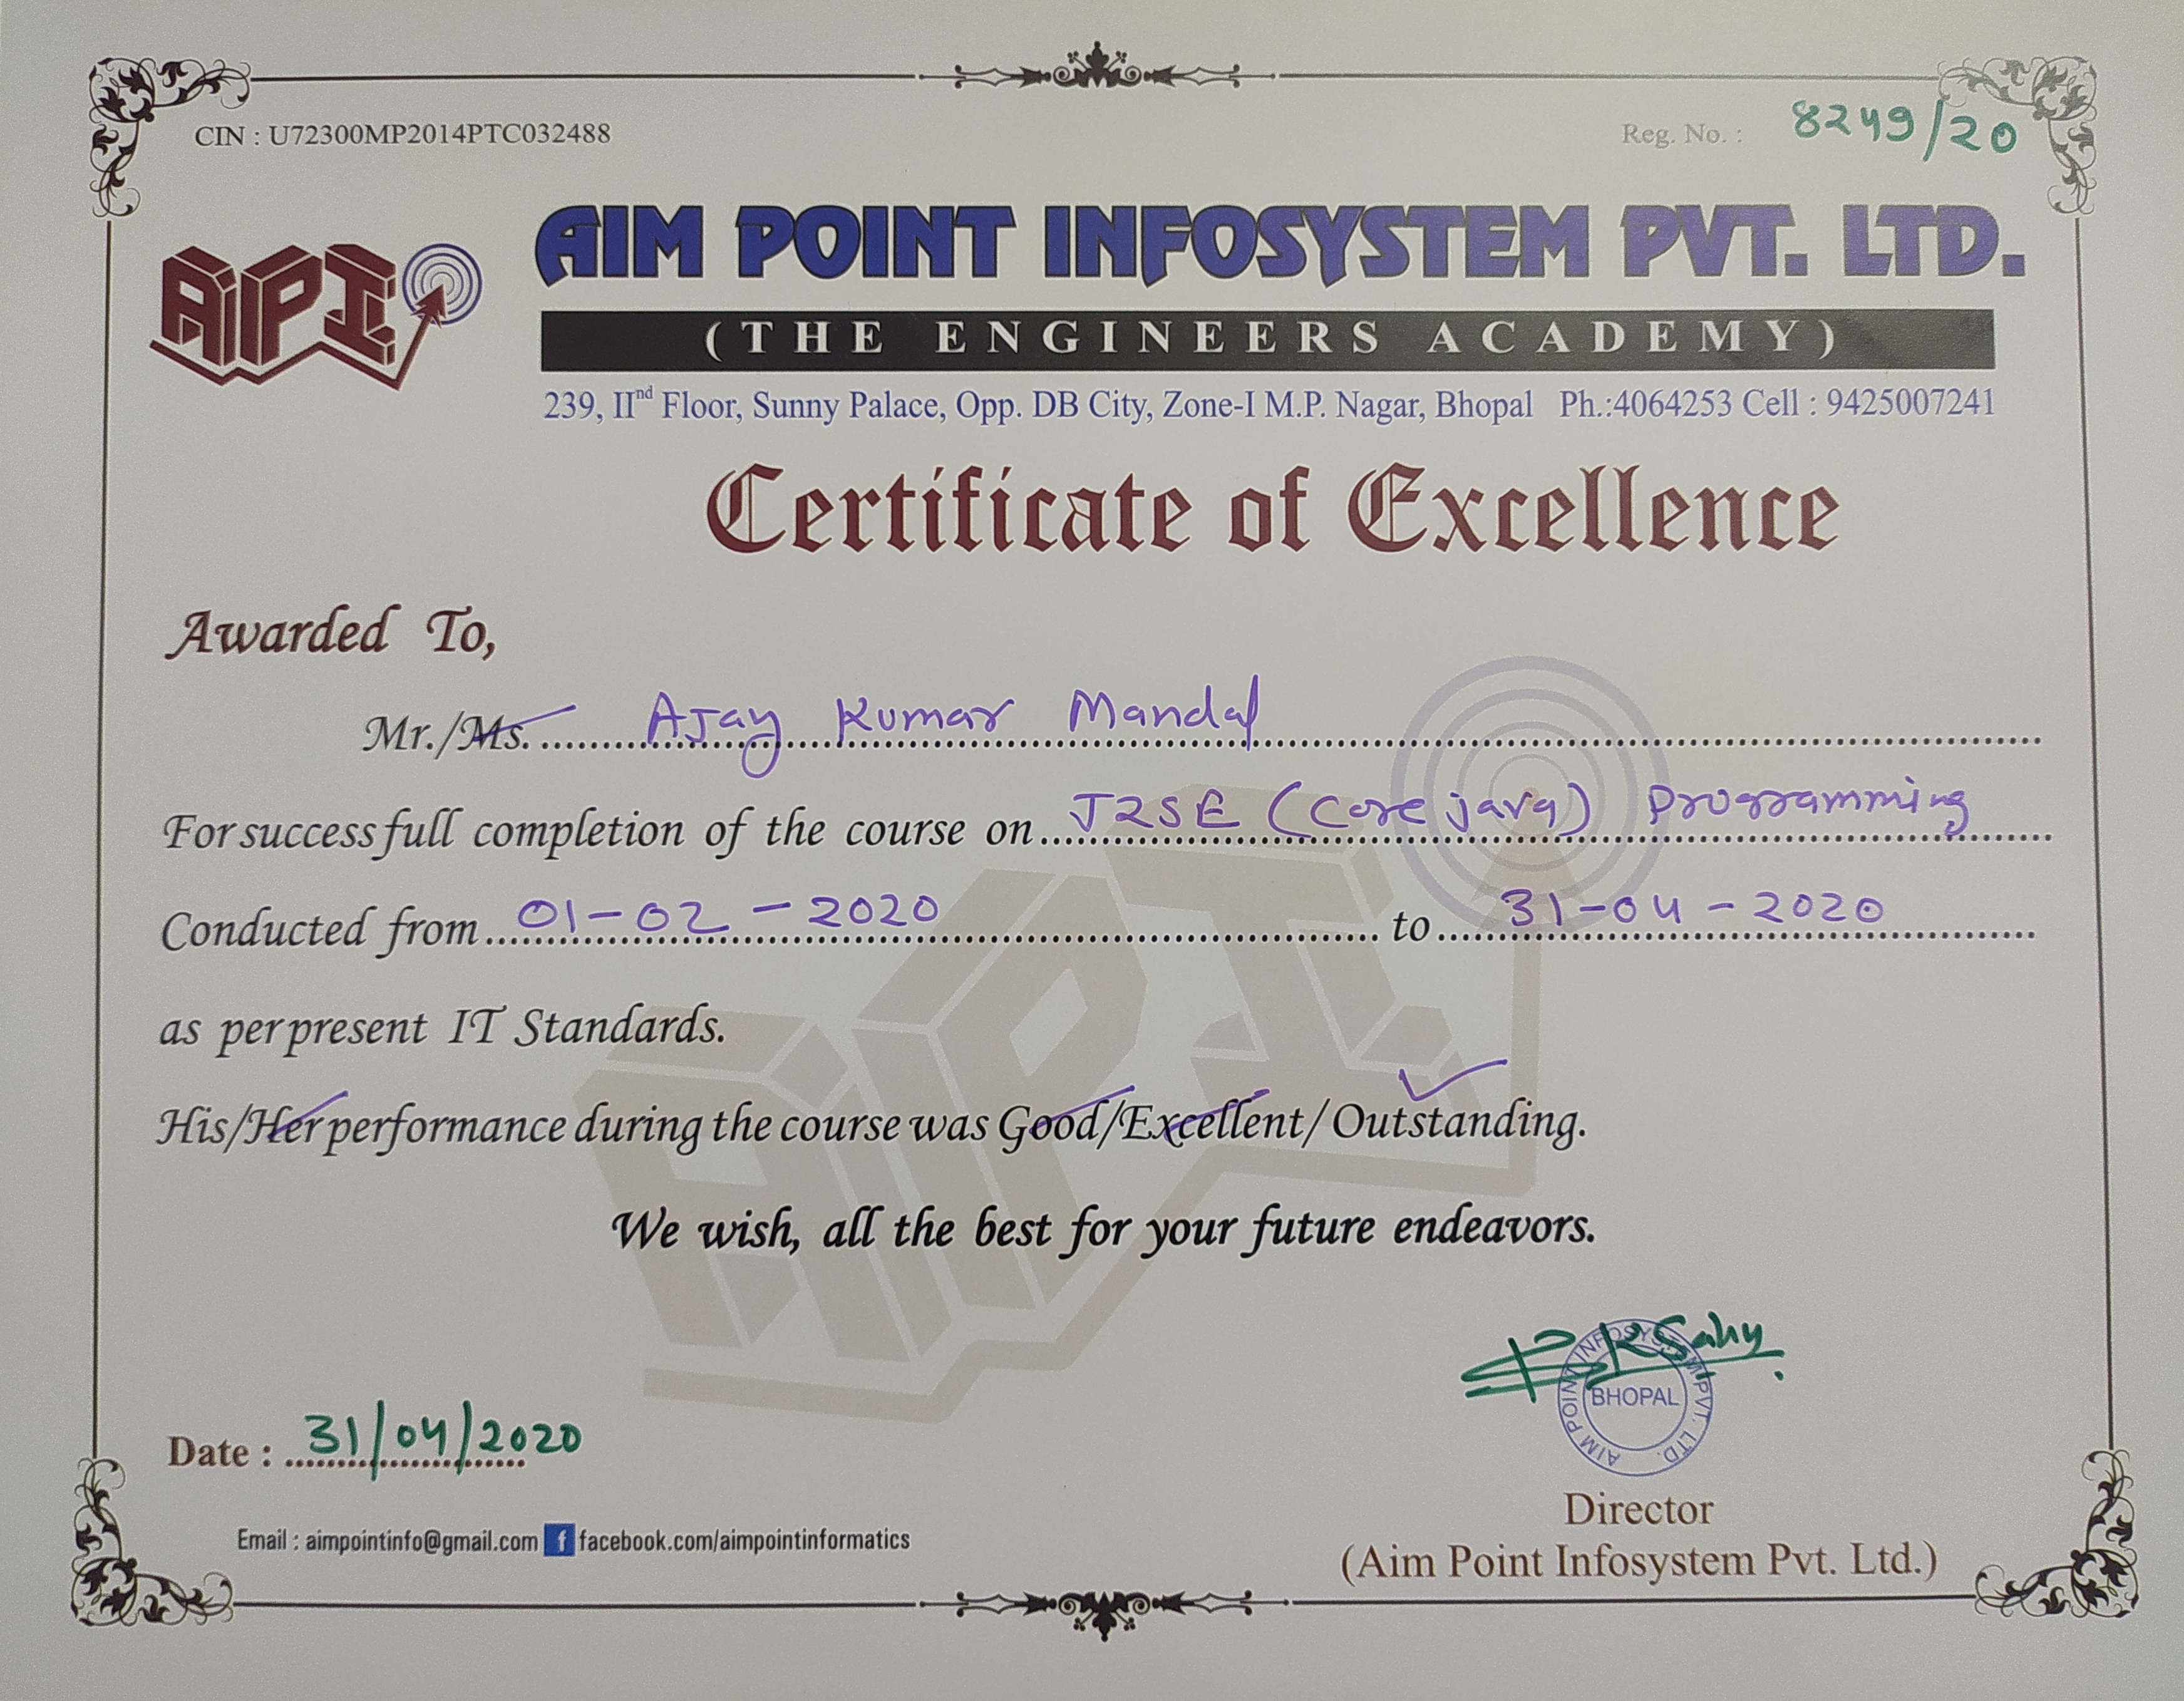 CIN : U72300MP2014PTC032488
Reg. No. : 8249/20
AIPI
AIM POINT INFOSYSTEM PVT. LTD.
(THE ENGINEERS ACADEMY)
239, IInd Floor, Sunny Palace, Opp. DB City, Zone-I M.P. Nagar, Bhopal Ph.:4064253 Cell : 9425007241
Certificate of Excellence
Awarded To,
Mr./Ms. AJay Kumar Mandal
For successfull completion of the course on J2SE (Core java) Programming
Conducted from 01-02-2020 to 31-04-2020
as per present IT Standards.
His/Her performance during the course was Good/Excellent/Outstanding.
We wish, all the best for your future endeavors.
RKSahy
AIM POINT INFOSYSTEM PVT. LTD.
BHOPAL
Date : 31/04/2020
Director
(Aim Point Infosystem Pvt. Ltd.)
Email : aimpointinfo@gmail.com f facebook.com/aimpointinformatics